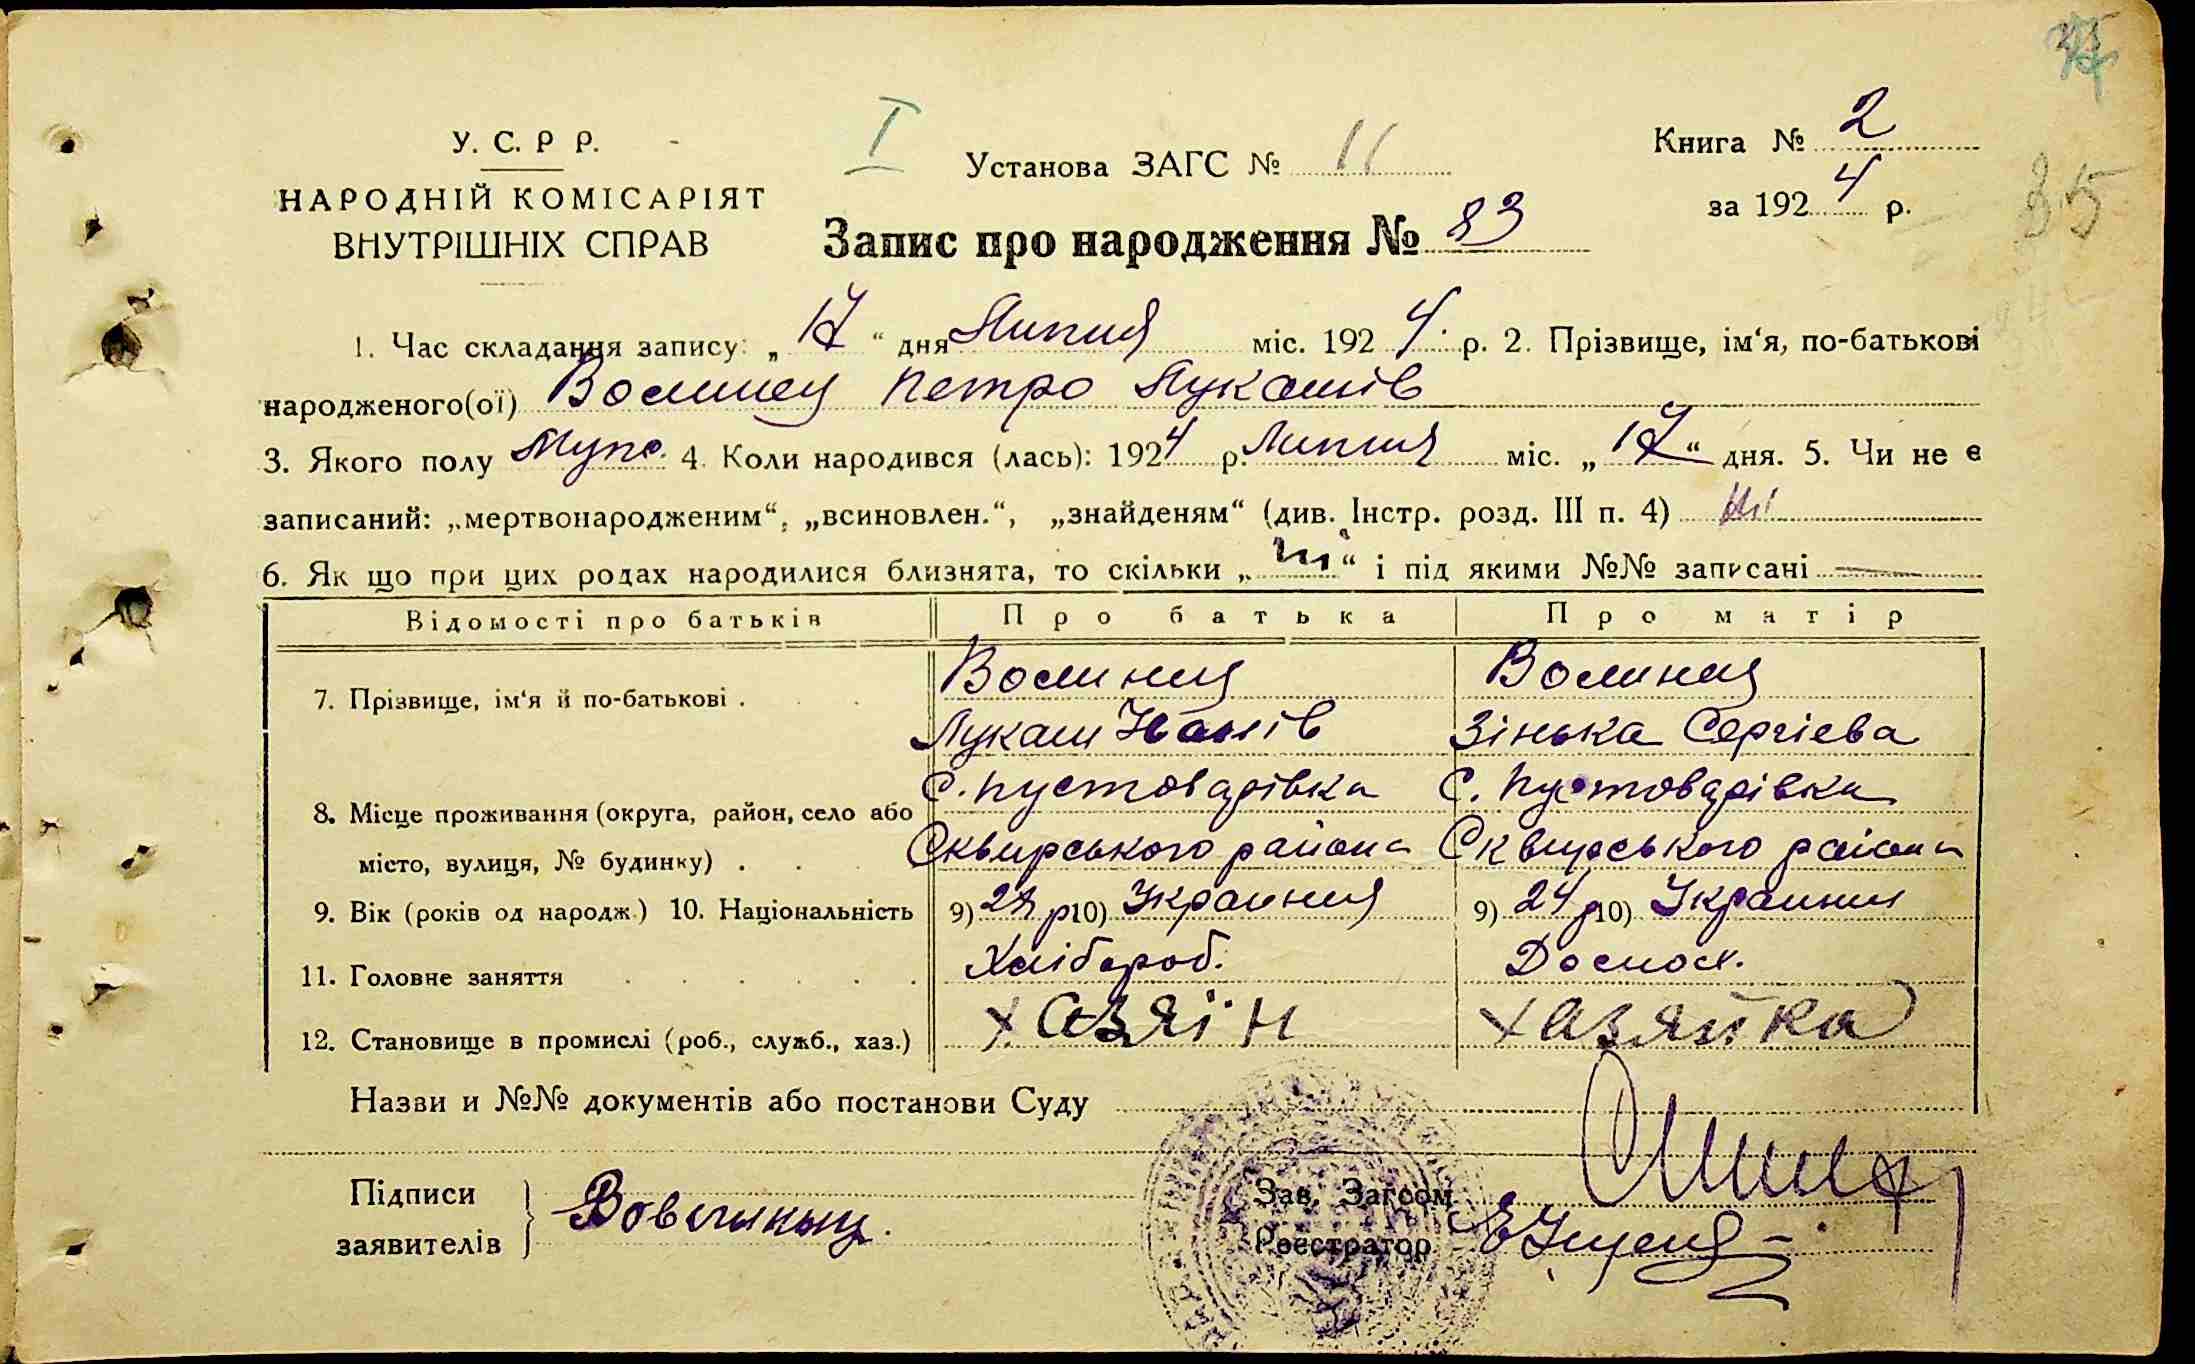 У. С. Р Р.
НАРОДНІЙ КОМІСАРІЯТ
ВНУТРІШНІХ СПРАВ
I
Установа ЗАГС № 11
Книга № 2
за 1924 р.
35
Запис про народження № 83
1. Час складання запису: „17“ дня Липня міс. 1924 р. 2. Прізвище, ім‘я, по-батькові
народженого(ої) Волинец Петро Лукашів
3. Якого полу Муж. 4. Коли народився (лась): 1924 р. Липня міс. „17“ дня. 5. Чи не є
записаний: „мертвонародженим“, „всиновлен.“, „знайденям“ (див. Інстр. розд. III п. 4) Ні
6. Як що при цих родах народилися близнята, то скільки „ні“ і під якими №№ записані —
Відомості про батьків Про батька Про матір
7. Прізвище, ім‘я й по-батькові . Волинец Волинец
Лукаш Іванів Зінька Сергієва
8. Місце проживання (округа, район, село або С. Пустоварівка С. Пустоварівка
місто, вулиця, № будинку) . Сквирського района Сквирського района
9. Вік (років од народж.) 10. Національність 9) р 10) Украинец 9) 24 р 10) Украинка
11. Головне заняття Хлібороб. Домох.
12. Становище в промислі (роб., служб., хаз.) хазяїн хазяйка
Назви и №№ документів або постанови Суду
Підписи
заявителів
Зав. Загсом
Реєстратор